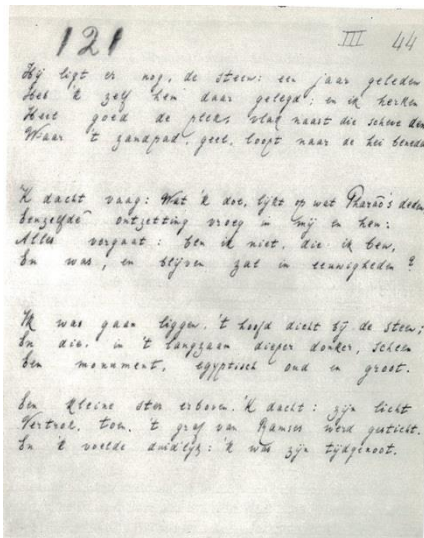 121 III 44
Hij ligt er nog, de steen: een jaar geleden
Heb 'k zelf hem daar gelegd; en ik herken
Heel goed de plek, vlak naast die scheve den
Waar 't zandpad, geel, loopt naar de hei beneden
'K dacht vaag: Wat 'k doe, lijkt op wat Pharao's deden
Eenzelfde ontzetting vroeg in mij en hen:
Alles vergaat: ben ik niet, die ik ben,
En was, en blijven zal in eeuwigheden?
Ik was gaan liggen, 't hoofd dicht bij de steen;
En die, in 't langzaam dieper donker, scheen
Een monument, egyptisch oud en groot.
Een kleine ster erboven. 'K dacht: zijn licht
Vertrok, toen 't graf van Ramses werd gesticht.
En 'k voelde duid'lijk: 'k was zijn tijdgenoot.